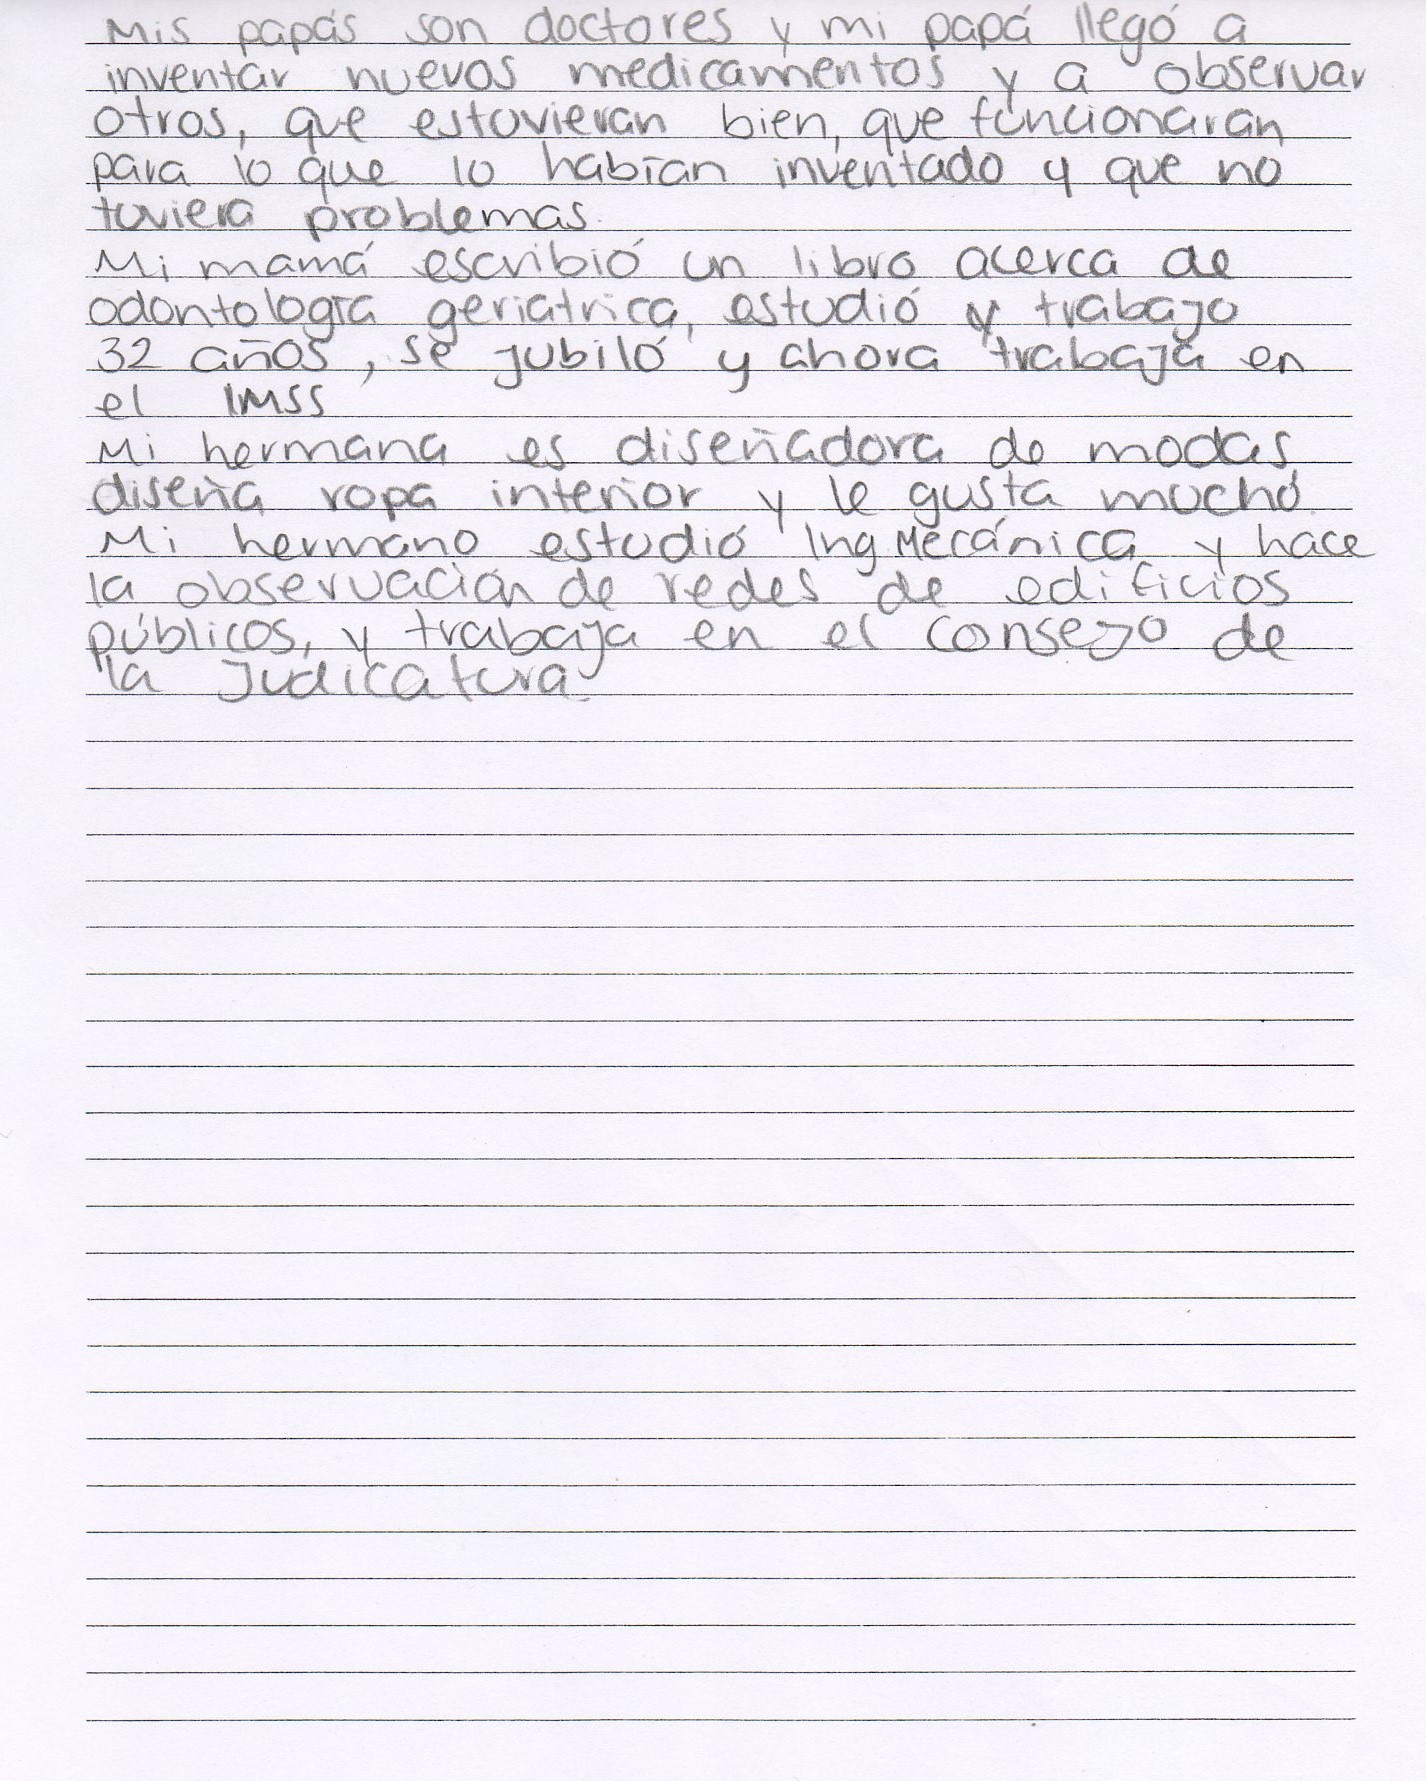 Mis papás son doctores y mi papá llegó a
inventar nuevos medicamentos y a observar
otros, que estuvieran bien, que funcionaran
para lo que lo habían inventado y que no
tuviera problemas.
Mi mamá escribió un libro acerca de
odontología geriatrica, estudió y trabajo
32 años, se jubiló y ahora trabaja en
el IMSS
Mi hermana es diseñadora de modas,
diseña ropa interior y le gusta mucho.
Mi hermano estudió Ing Mecánica y hace
la observación de redes de edificios
públicos, y trabaja en el Consejo de
la Judicatura.